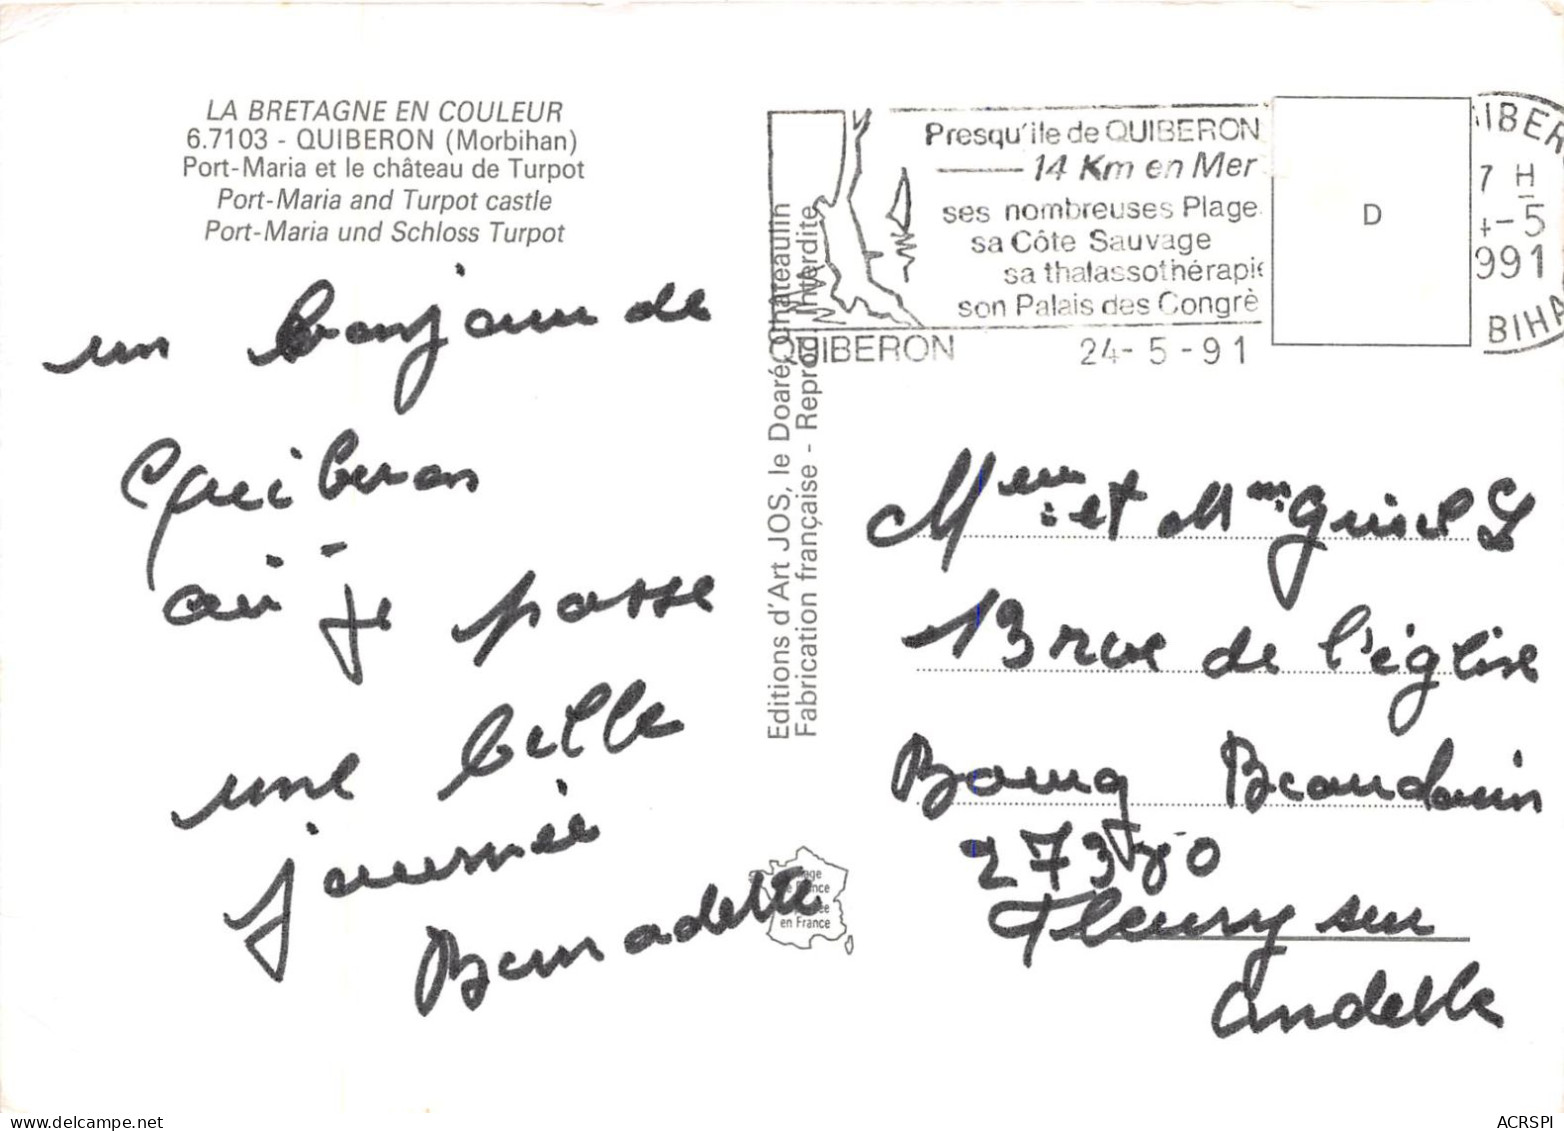 LA BRETAGNE EN COULEUR
6.7103 - QUIBERON (Morbihan)
Port-Maria et le château de Turpot
Port-Maria and Turpot castle
Port-Maria und Schloss Turpot
un bonjour de
Quiberon
où je passe
une belle
journée
Bernadette
Editions d'Art JOS, le Doaré, Châteaulin
Fabrication française - Reprod. Interdite
Presqu'ile de QUIBERON
14 Km en Mer
ses nombreuses Plage
sa Côte Sauvage
sa thalassothérapie
son Palais des Congrè
QUIBERON 24-5-91
D
IBER
7 H
4-5
991
BIHA
Meur et Mme
13 rue de l'église
Bourg Beaudouin
27380
Fleury sur
Andelle
en France
ACRSPI